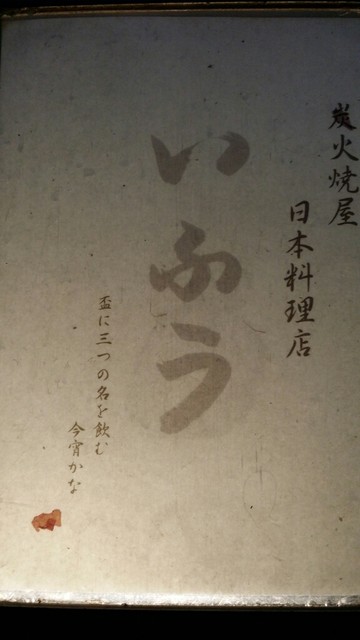 炭火焼屋
日本料理店
いふう
盃に三つの名を飲む
今宵かな